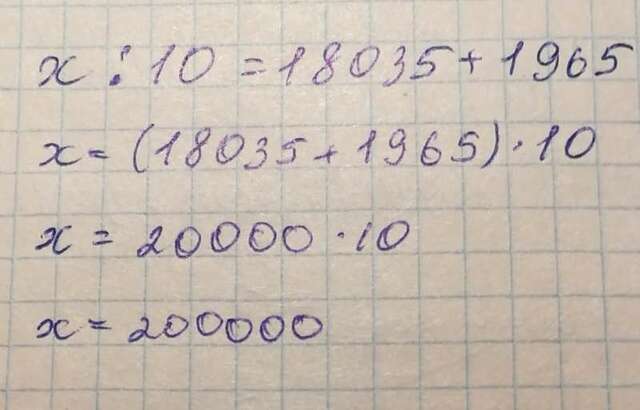 x : 10 = 18035 + 1965
x = (18035 + 1965) · 10
x = 20000 · 10
x = 200000